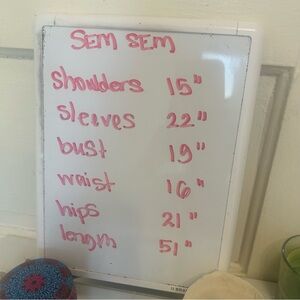 SEM SEM
shoulders 15"
sleeves 22"
bust 19"
waist 16"
hips 21"
length 51"